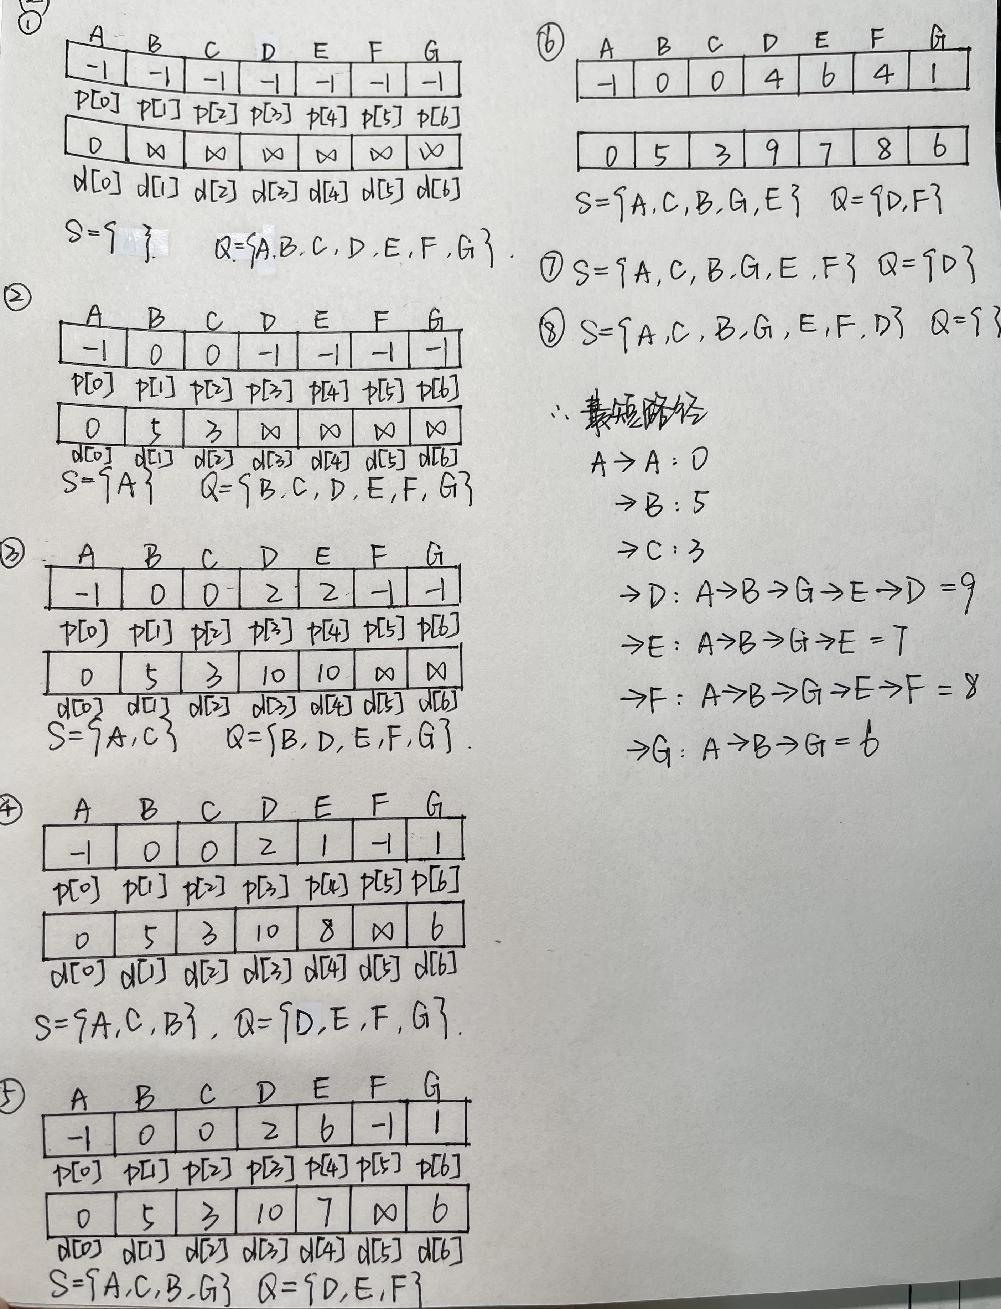 ①
A B C D E F G
-1 -1 -1 -1 -1 -1 -1
p[0] p[1] p[2] p[3] p[4] p[5] p[6]
0 ∞ ∞ ∞ ∞ ∞ ∞
d[0] d[1] d[2] d[3] d[4] d[5] d[6]
S={ }. Q={A.B.C,D,E,F,G}.
②
A B C D E F G
-1 0 0 -1 -1 -1 -1
p[0] p[1] p[2] p[3] p[4] p[5] p[6]
0 5 3 ∞ ∞ ∞ ∞
d[0] d[1] d[2] d[3] d[4] d[5] d[6]
S={A} Q={B.C,D,E,F,G}
③
A B C D E F G
-1 0 0 2 2 -1 -1
p[0] p[1] p[2] p[3] p[4] p[5] p[6]
0 5 3 10 10 ∞ ∞
d[0] d[1] d[2] d[3] d[4] d[5] d[6]
S={A,C} Q={B,D,E,F,G}.
④
A B C D E F G
-1 0 0 2 1 -1 1
p[0] p[1] p[2] p[3] p[4] p[5] p[6]
0 5 3 10 8 ∞ 6
d[0] d[1] d[2] d[3] d[4] d[5] d[6]
S={A,C,B}, Q={D,E,F,G}.
⑤
A B C D E F G
-1 0 0 2 6 -1 1
p[0] p[1] p[2] p[3] p[4] p[5] p[6]
0 5 3 10 7 ∞ 6
d[0] d[1] d[2] d[3] d[4] d[5] d[6]
S={A,C,B,G} Q={D,E,F}
⑥
A B C D E F G
-1 0 0 4 6 4 1
0 5 3 9 7 8 6
S={A,C,B,G,E} Q={D,F}
⑦ S={A,C,B,G,E,F} Q={D}
⑧ S={A,C,B,G,E,F,D} Q={}
∴ 最短路径
A→A:0
→B:5
→C:3
→D: A→B→G→E→D=9
→E: A→B→G→E=7
→F: A→B→G→E→F=8
→G: A→B→G=6